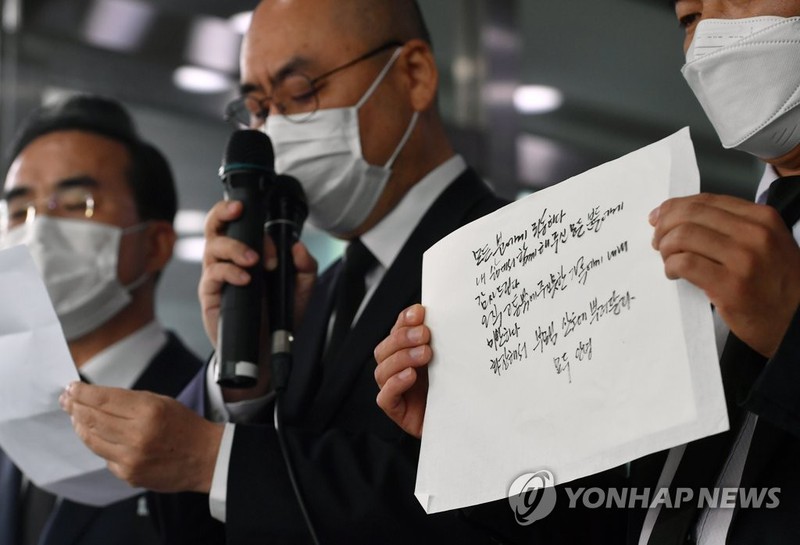 모든 분에게 죄송하다
내 삶에서 함께 해주신 모든 분들에게
감사드린다
오직 고통밖에 주지 못한 가족에게 내내
미안하다
화장해서 부모님 산소에 뿌려달라
모두 안녕
YONHAP NEWS